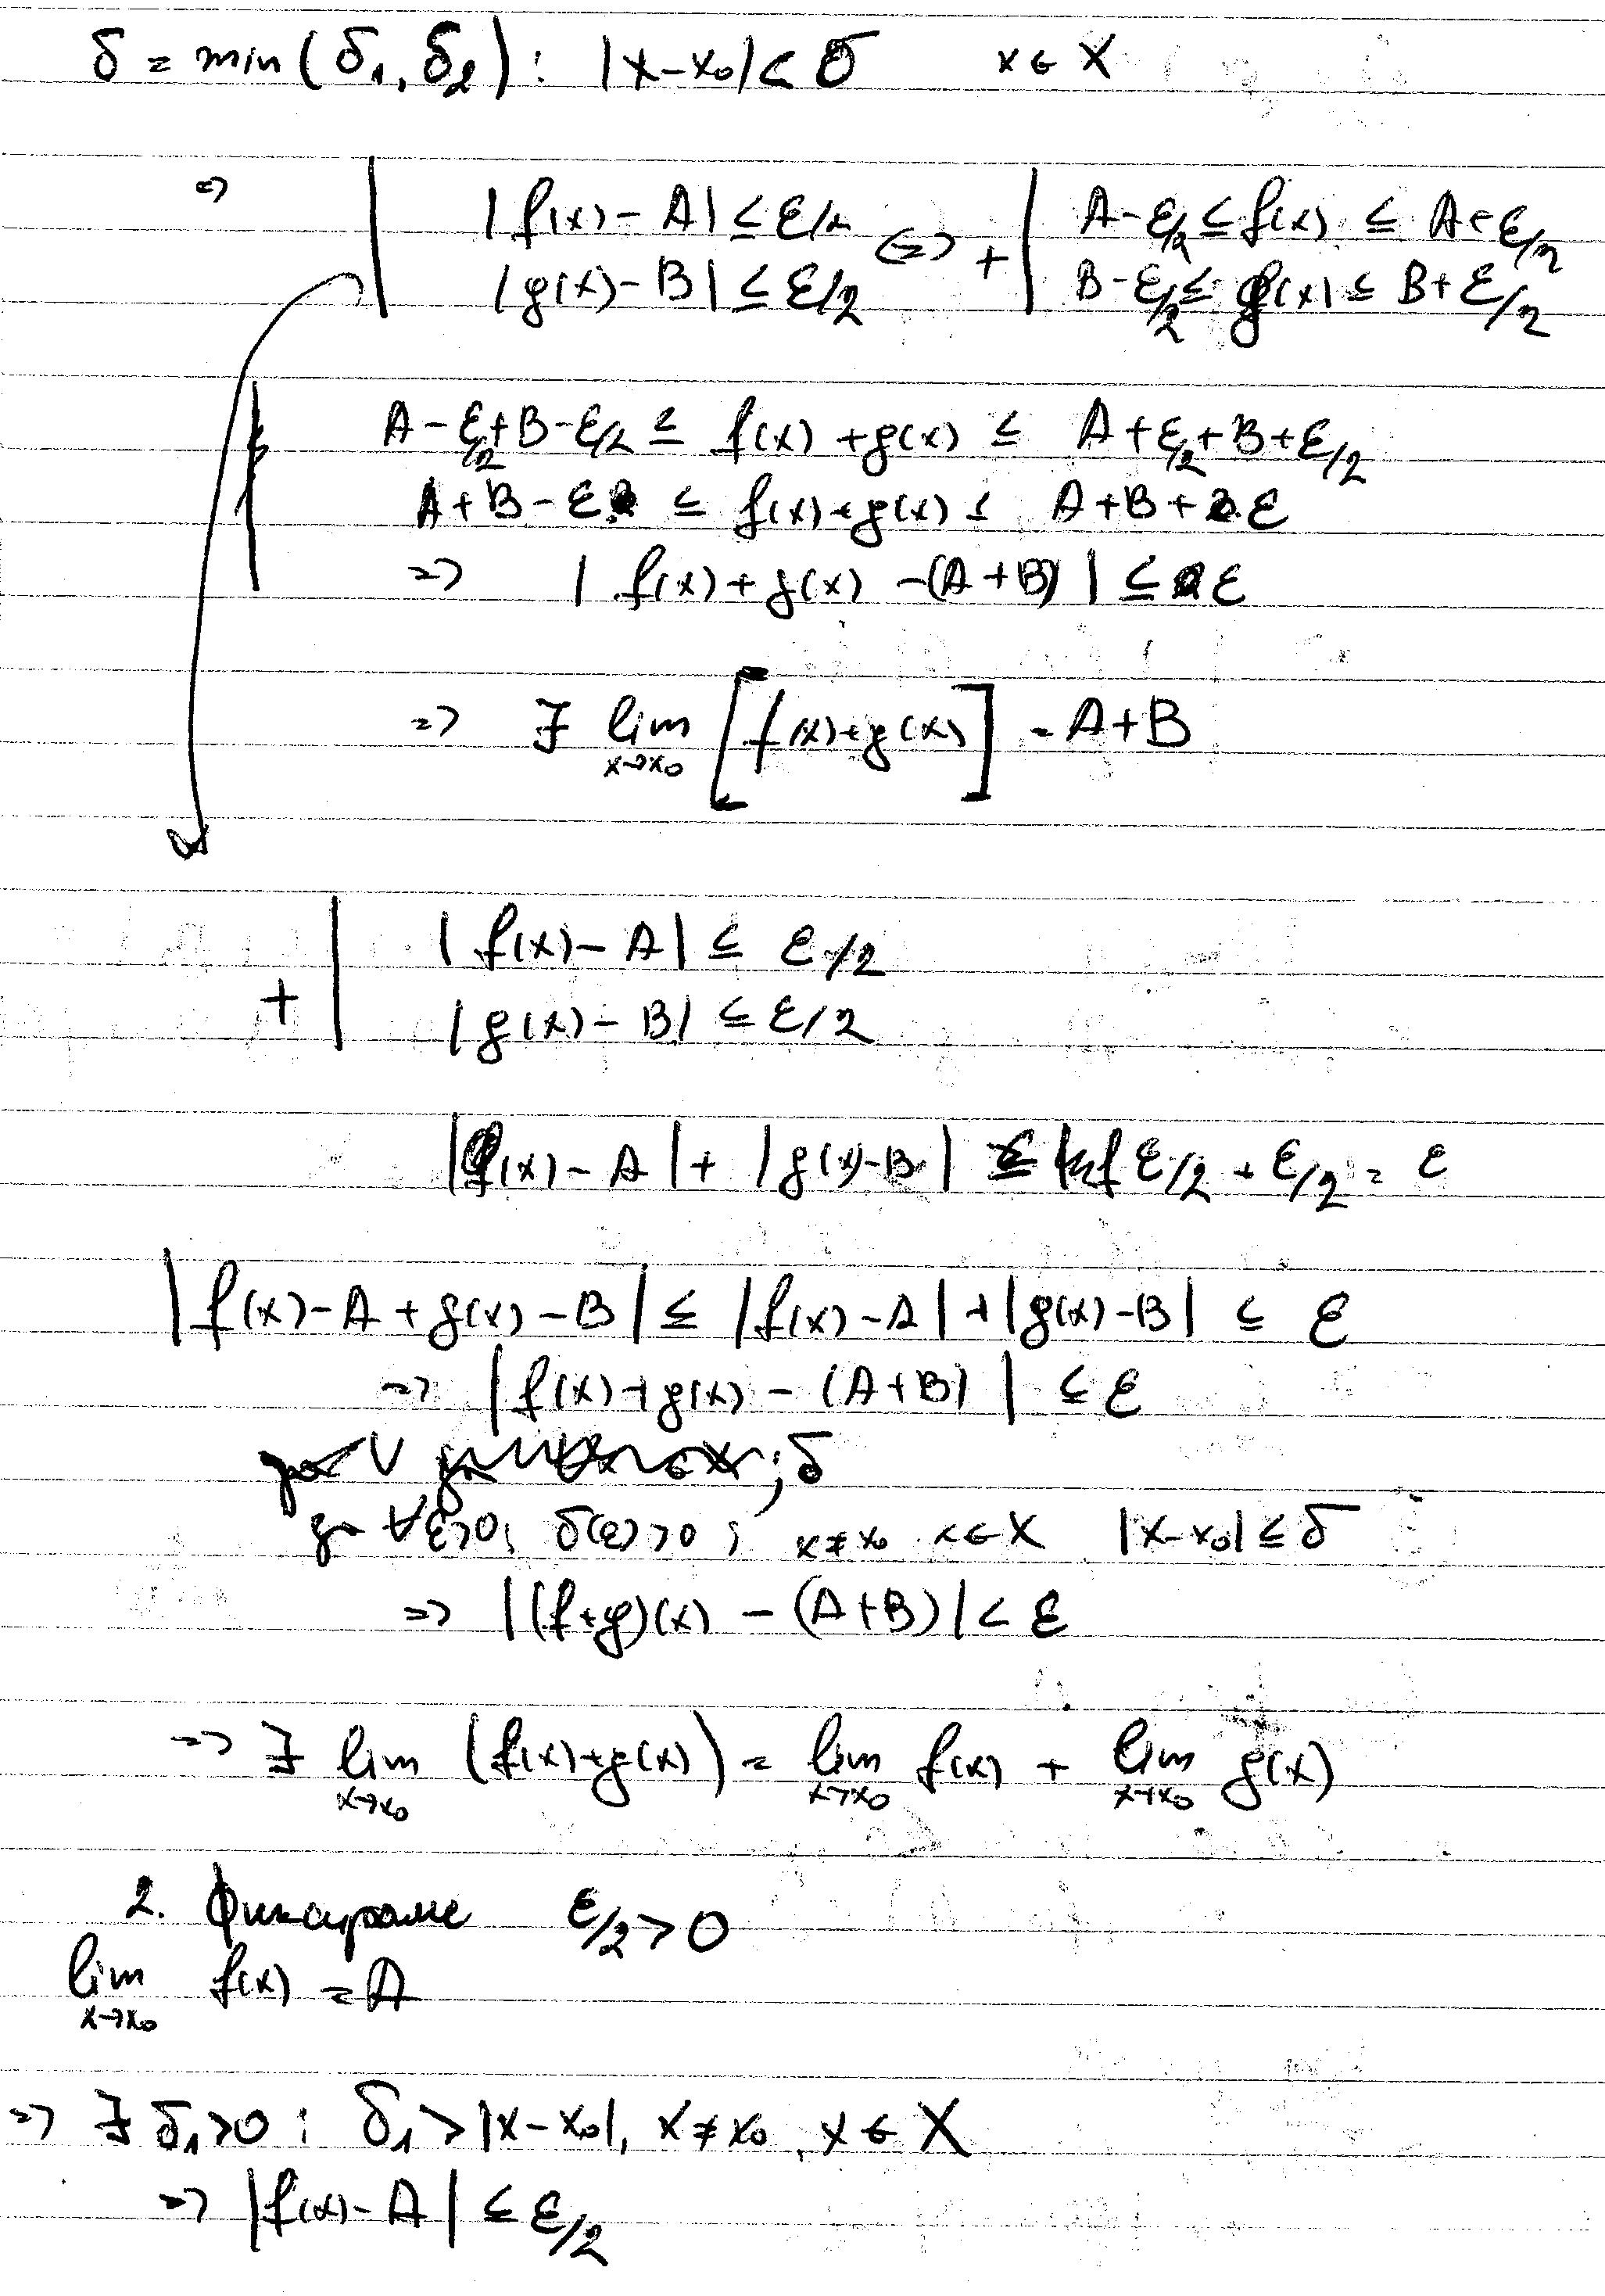 δ = min(δ₁, δ₂): |x-x₀| < δ x ∈ X
⇒ |f(x) - A| ≤ ε/2 ⇔ + | A-ε/2 ≤ f(x) ≤ A+ε/2
|g(x) - B| ≤ ε/2 B-ε/2 ≤ g(x) ≤ B+ε/2
A-ε/2+B-ε/2 ≤ f(x)+g(x) ≤ A+ε/2+B+ε/2
A+B-ε ≤ f(x)+g(x) ≤ A+B+ε
⇒ |f(x)+g(x) -(A+B)| ≤ ε
⇒ ∃ lim x→x₀ [f(x)+g(x)] = A+B
|f(x)-A| ≤ ε/2
+ |g(x)-B| ≤ ε/2
|f(x)-A| + |g(x)-B| ≤ ε/2 + ε/2 = ε
|f(x)-A+g(x)-B| ≤ |f(x)-A|+|g(x)-B| ≤ ε
⇒ |f(x)+g(x) - (A+B)| ≤ ε
∀ε>0, δ(ε)>0; x≠x₀ x∈X |x-x₀| ≤ δ
⇒ |(f+g)(x) - (A+B)| < ε
⇒ ∃ lim x→x₀ (f(x)+g(x)) = lim x→x₀ f(x) + lim x→x₀ g(x)
2. Фиксираме ε/2 > 0
lim x→x₀ f(x) = A
⇒ ∃ δ₁>0 : δ₁ > |x-x₀|, x≠x₀, x ∈ X
⇒ |f(x)-A| ≤ ε/2